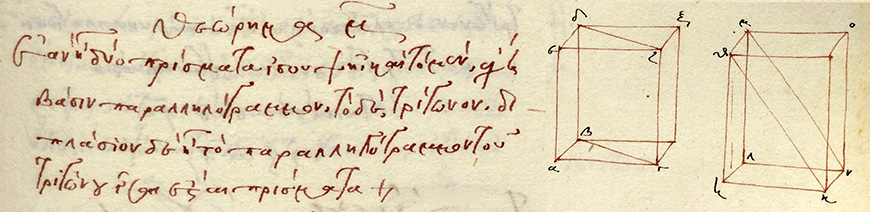 Θεώρημα μ
Ἐὰν ᾖ δύο πρίσματα ἰσουψῆ καὶ τὸ μὲν ἔχῃ
βάσιν παραλληλόγραμμον, τὸ δὲ, τρίγωνον, δι
πλάσιον δὲ ᾖ τὸ παραλληλόγραμμον τοῦ
τριγώνου ἴσα ἔσται πρίσματα
δ ξ
ε ζ
β
α γ
μ ο
θ
λ ν
η κ